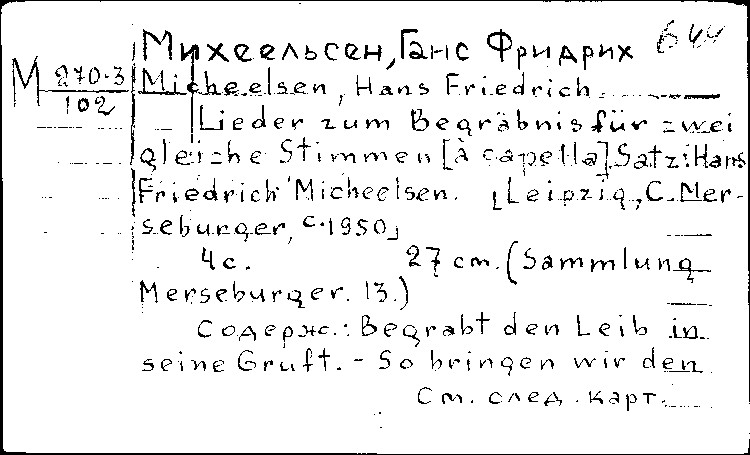 Михеельсен, Ганс Фридрих
М 270-3
102
Micheelsen, Hans Friedrich.
Lieder zum Begräbnis für zwei
gleiche Stimmen [à capella] Satz: Hans
Friedrich Micheelsen. [Leipzig, C. Mer-
seburger, c. 1950]
4 с. 27 cm. (Sammlung
Merseburger. 13.)
Содерж.: Begrabt den Leib in
seine Gruft. - So bringen wir den
См. след. карт.